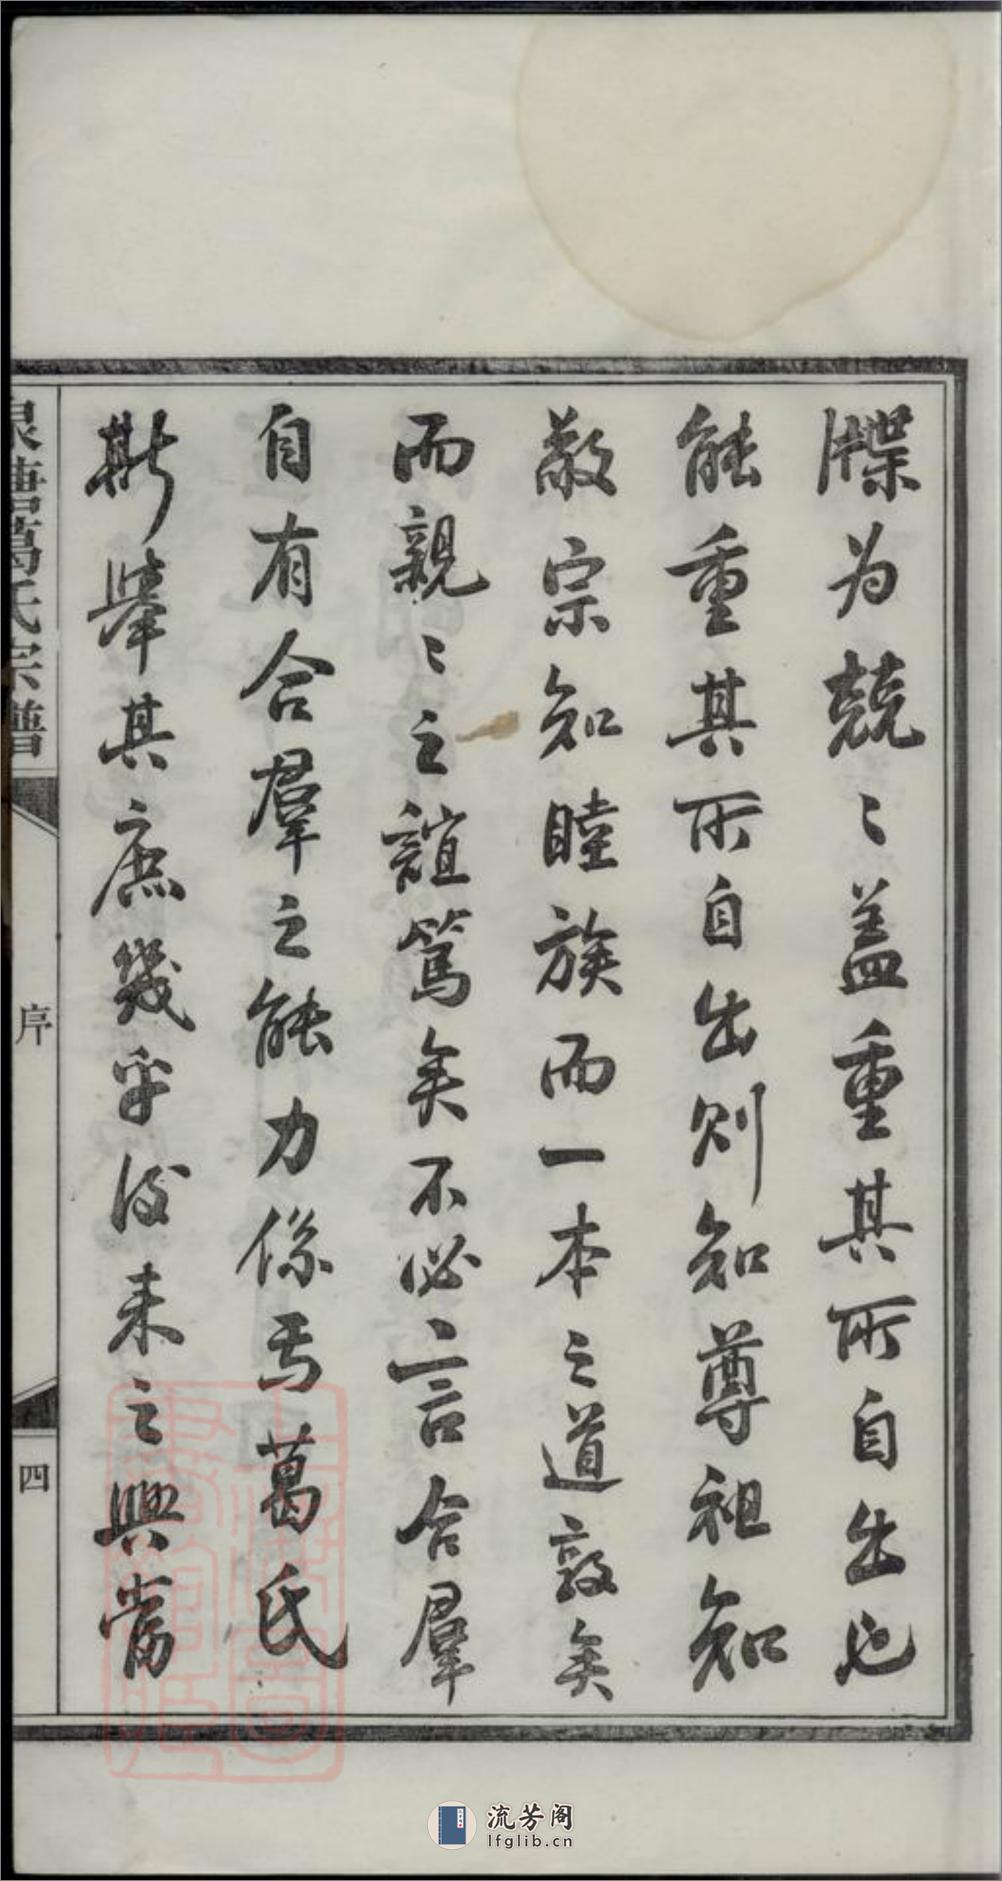 牒为兢〻蓋重其所自出也
能重其所自出则知尊祖知
敬宗知睦族而一本之道敦矣
而親〻之誼篤矣不必言合羣
自有合羣之能力係焉葛氏
斯舉其庶幾乎後来之興當
泉唐葛氏宗譜
序
四
流芳阁
lfglib.cn